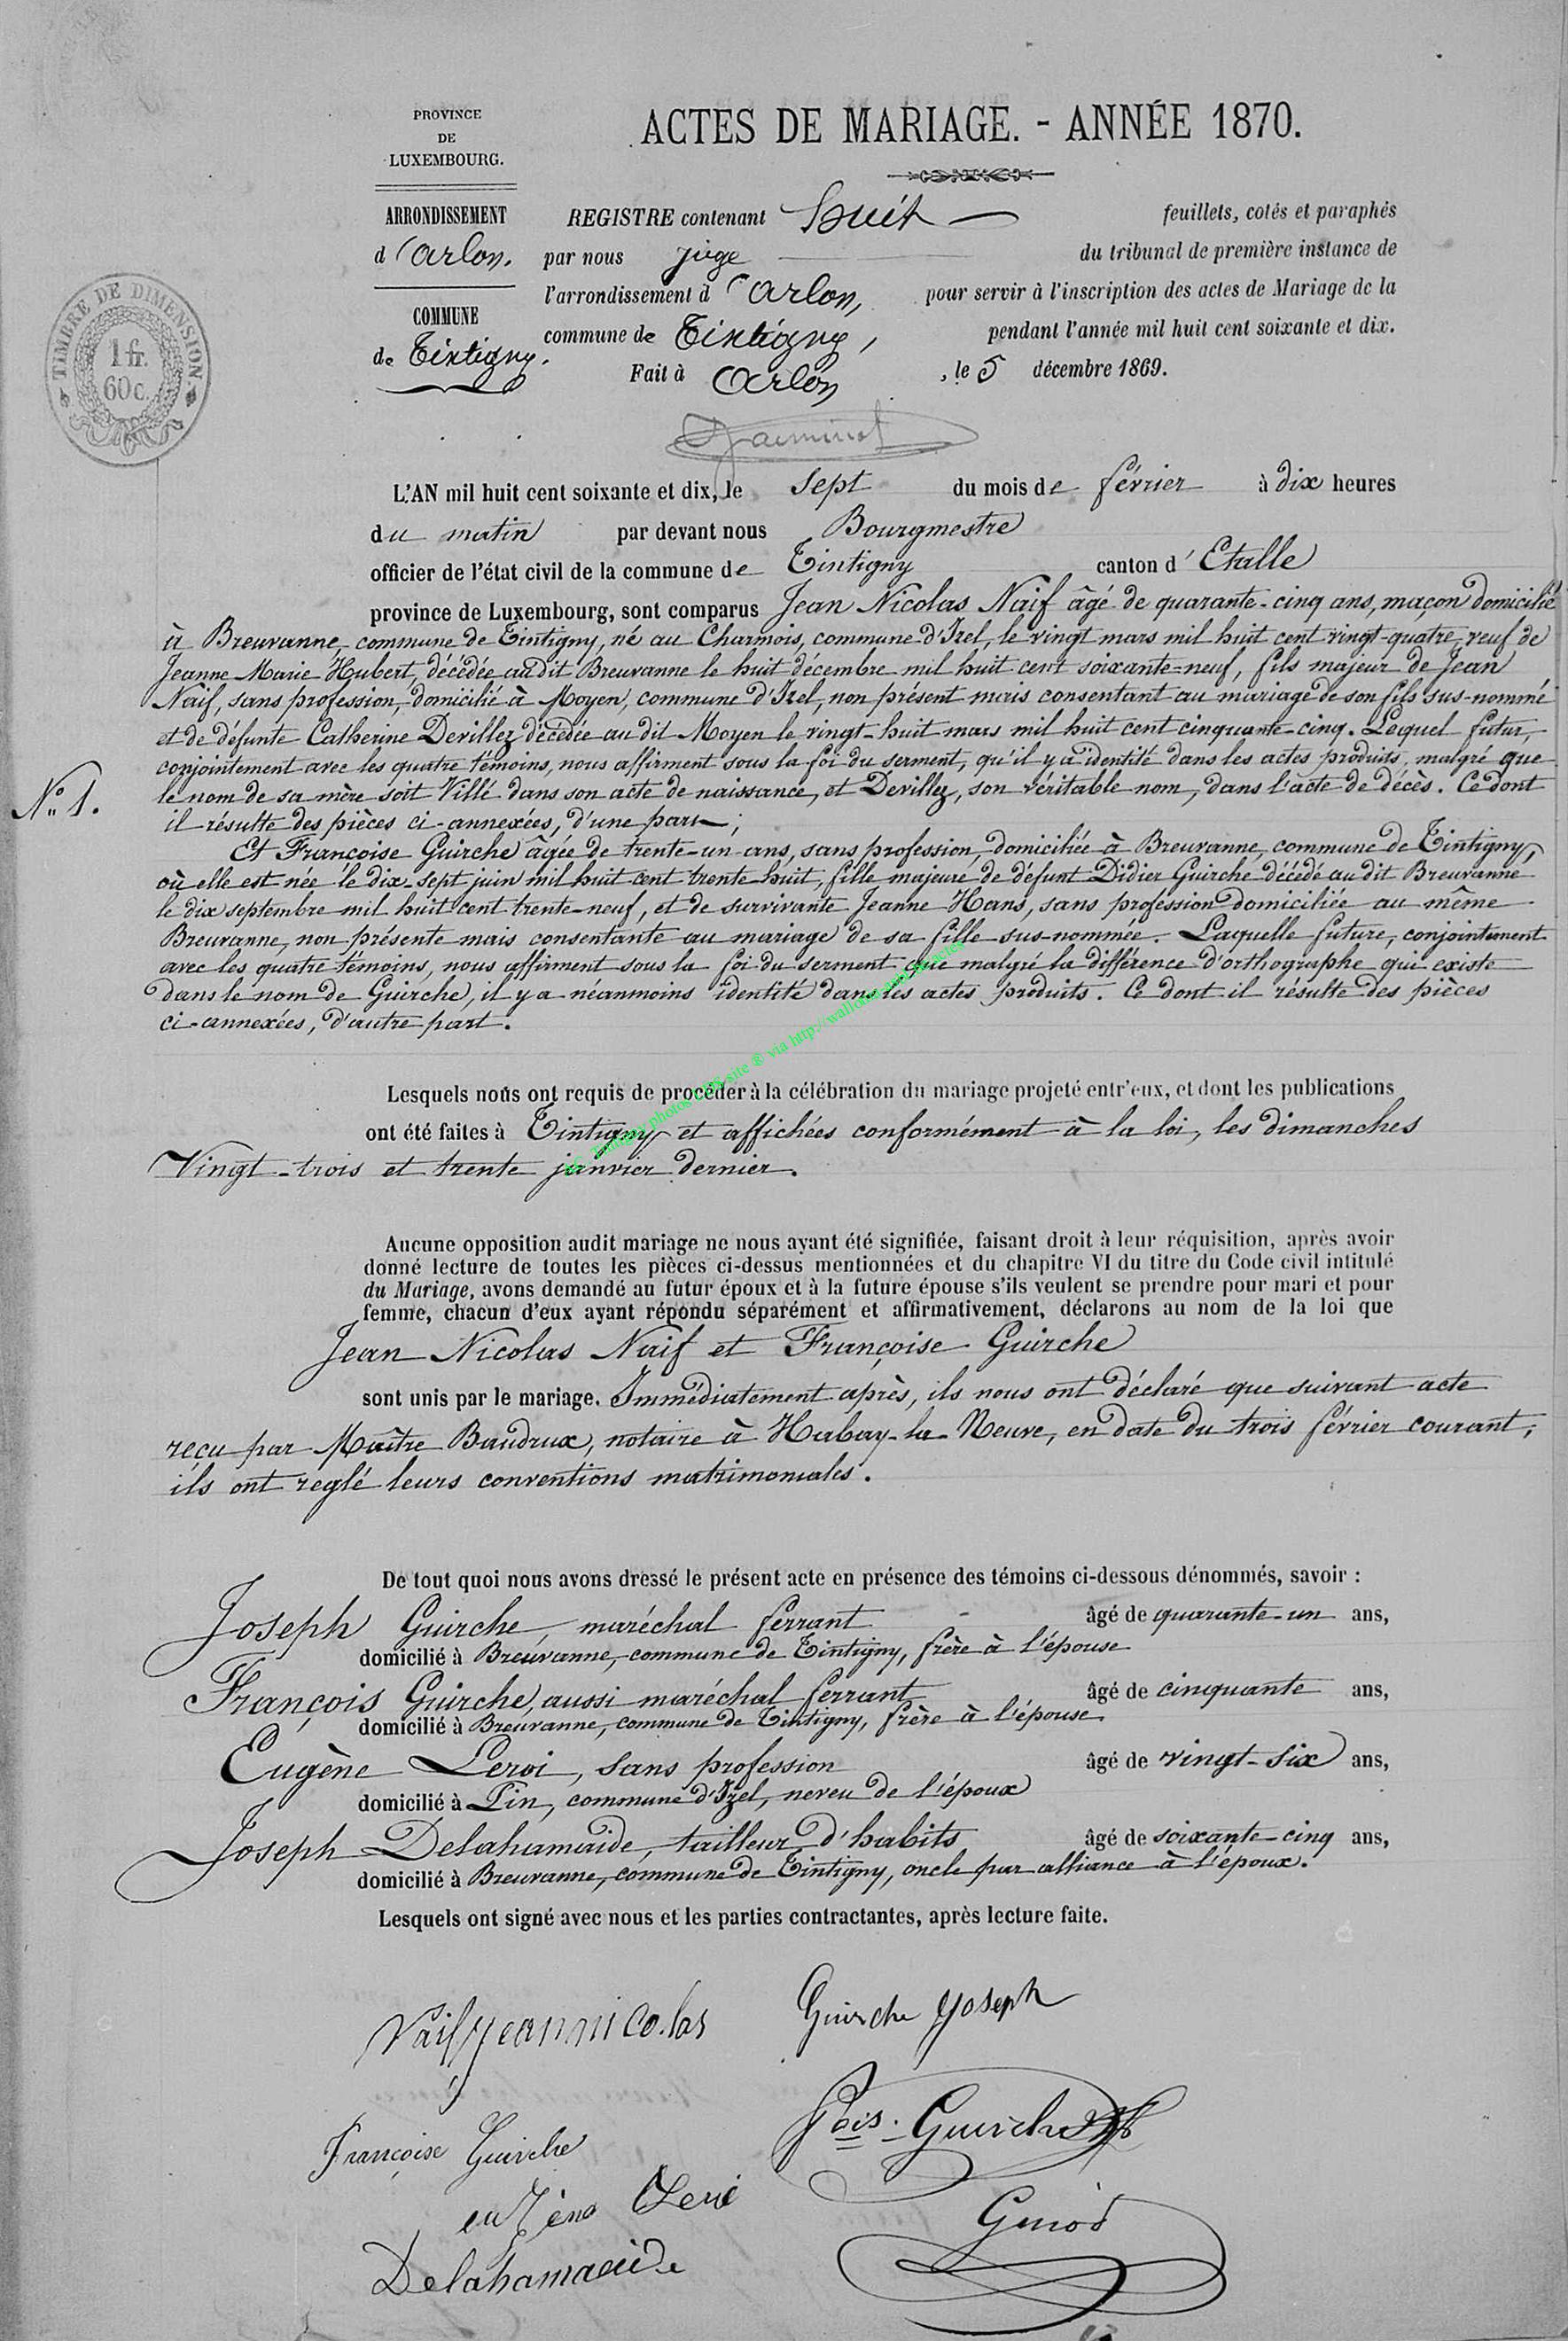 PROVINCE
DE
LUXEMBOURG.
ACTES DE MARIAGE. - ANNÉE 1870.
ARRONDISSEMENT
d'Arlon.
COMMUNE
de Tintigny.
TIMBRE DE DIMENSION
1 fr.
60 c.
REGISTRE contenant huit feuillets, cotés et paraphés
par nous juge du tribunal de première instance de
l'arrondissement d'Arlon, pour servir à l'inscription des actes de Mariage de la
commune de Tintigny, pendant l'année mil huit cent soixante et dix.
Fait à Arlon, le 5 décembre 1869.
L'AN mil huit cent soixante et dix, le sept du mois de février à dix heures
du matin par devant nous Bourgmestre
officier de l'état civil de la commune de Tintigny canton d'Etalle
province de Luxembourg, sont comparus Jean Nicolas Naif âgé de quarante-cinq ans, maçon domicilié
à Breuvanne, commune de Tintigny, né au Charmois, commune d'Izel, le vingt mars mil huit cent vingt-quatre, veuf de
Jeanne Marie Hubert, décédée audit Breuvanne le huit décembre mil huit cent soixante-neuf, fils majeur de Jean
Naif, sans profession, domicilié à Moyen, commune d'Izel, non présent mais consentant au mariage de son fils sus-nommé
et de défunte Catherine Devillez décédée au dit Moyen le vingt-huit mars mil huit cent cinquante-cinq. Lequel futur,
conjointement avec les quatre témoins, nous affirment sous la foi du serment, qu'il y a identité dans les actes produits, malgré que
N° 1.
le nom de sa mère soit Villé dans son acte de naissance, et Devillez, son véritable nom, dans l'acte de décès. Ce dont
il résulte des pièces ci-annexées, d'une part;
Et Françoise Guirche âgée de trente-un ans, sans profession, domiciliée à Breuvanne, commune de Tintigny,
où elle est née le dix-sept juin mil huit cent trente huit, fille majeure de défunt Didier Guirche décédé au dit Breuvanne
le dix septembre mil huit cent trente-neuf, et de survivante Jeanne Hans, sans profession domiciliée au même
Breuvanne, non présente mais consentante au mariage de sa fille sus-nommée. Laquelle future, conjointement
avec les quatre témoins, nous affirment sous la foi du serment que malgré la différence d'orthographe qui existe
dans le nom de Guirche, il y a néanmoins identité dans les actes produits. Ce dont il résulte des pièces
ci-annexées, d'autre part.
Lesquels nous ont requis de procéder à la célébration du mariage projeté entr'eux, et dont les publications
ont été faites à Tintigny et affichées conformément à la loi, les dimanches
Vingt-trois et trente janvier dernier.
Aucune opposition audit mariage ne nous ayant été signifiée, faisant droit à leur réquisition, après avoir
donné lecture de toutes les pièces ci-dessus mentionnées et du chapitre VI du titre du Code civil intitulé
du Mariage, avons demandé au futur époux et à la future épouse s'ils veulent se prendre pour mari et pour
femme, chacun d'eux ayant répondu séparément et affirmativement, déclarons au nom de la loi que
Jean Nicolas Naif et Françoise Guirche
sont unis par le mariage. Immédiatement après, ils nous ont déclaré que suivant acte
reçu par Maître Baudrux, notaire à Habay-la-Neuve, en date du trois février courant,
ils ont reglé leurs conventions matrimoniales.
De tout quoi nous avons dressé le présent acte en présence des témoins ci-dessous dénommés, savoir :
Joseph Guirche, maréchal ferrant âgé de quarante-un ans,
domicilié à Breuvanne, commune de Tintigny, frère à l'épouse
François Guirche, aussi maréchal ferrant âgé de cinquante ans,
domicilié à Breuvanne, commune de Tintigny, frère à l'épouse
Eugène Leroi, sans profession âgé de vingt-six ans,
domicilié à Pin, commune d'Izel, neveu de l'époux
Joseph Delahamaide, tailleur d'habits âgé de soixante-cinq ans,
domicilié à Breuvanne, commune de Tintigny, oncle par alliance à l'époux.
Lesquels ont signé avec nous et les parties contractantes, après lecture faite.
Naif jean nicolas
Guirche joseph
fçois. Guirche
Françoise Guirche
Delahamaide